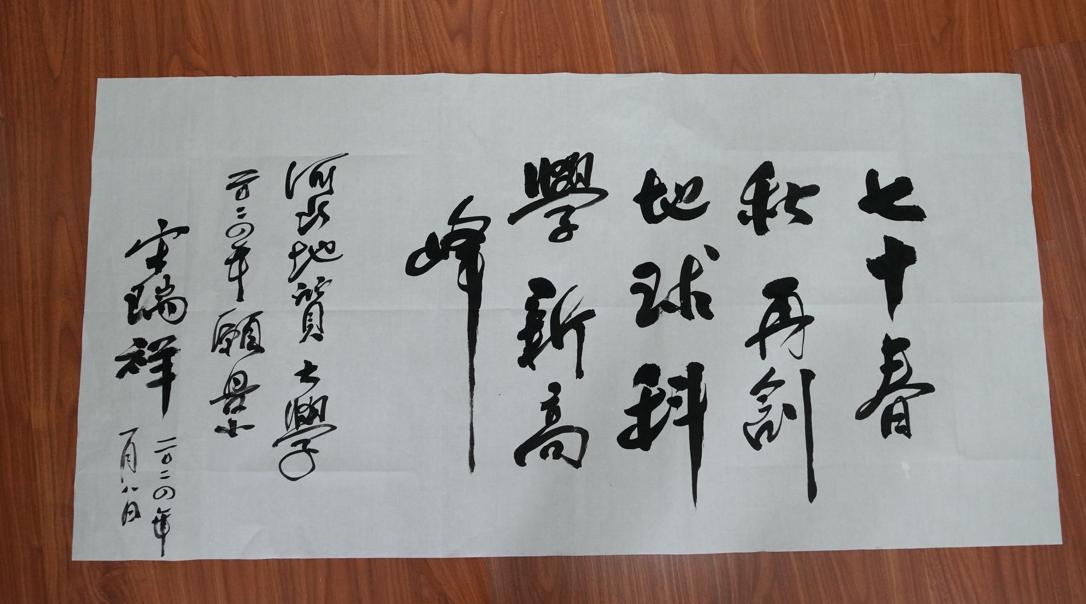 七十春
秋再創
地球科
學新高
峰
河北地質大學
二〇二〇年願景
宋瑞祥
二〇二〇年
一月八日